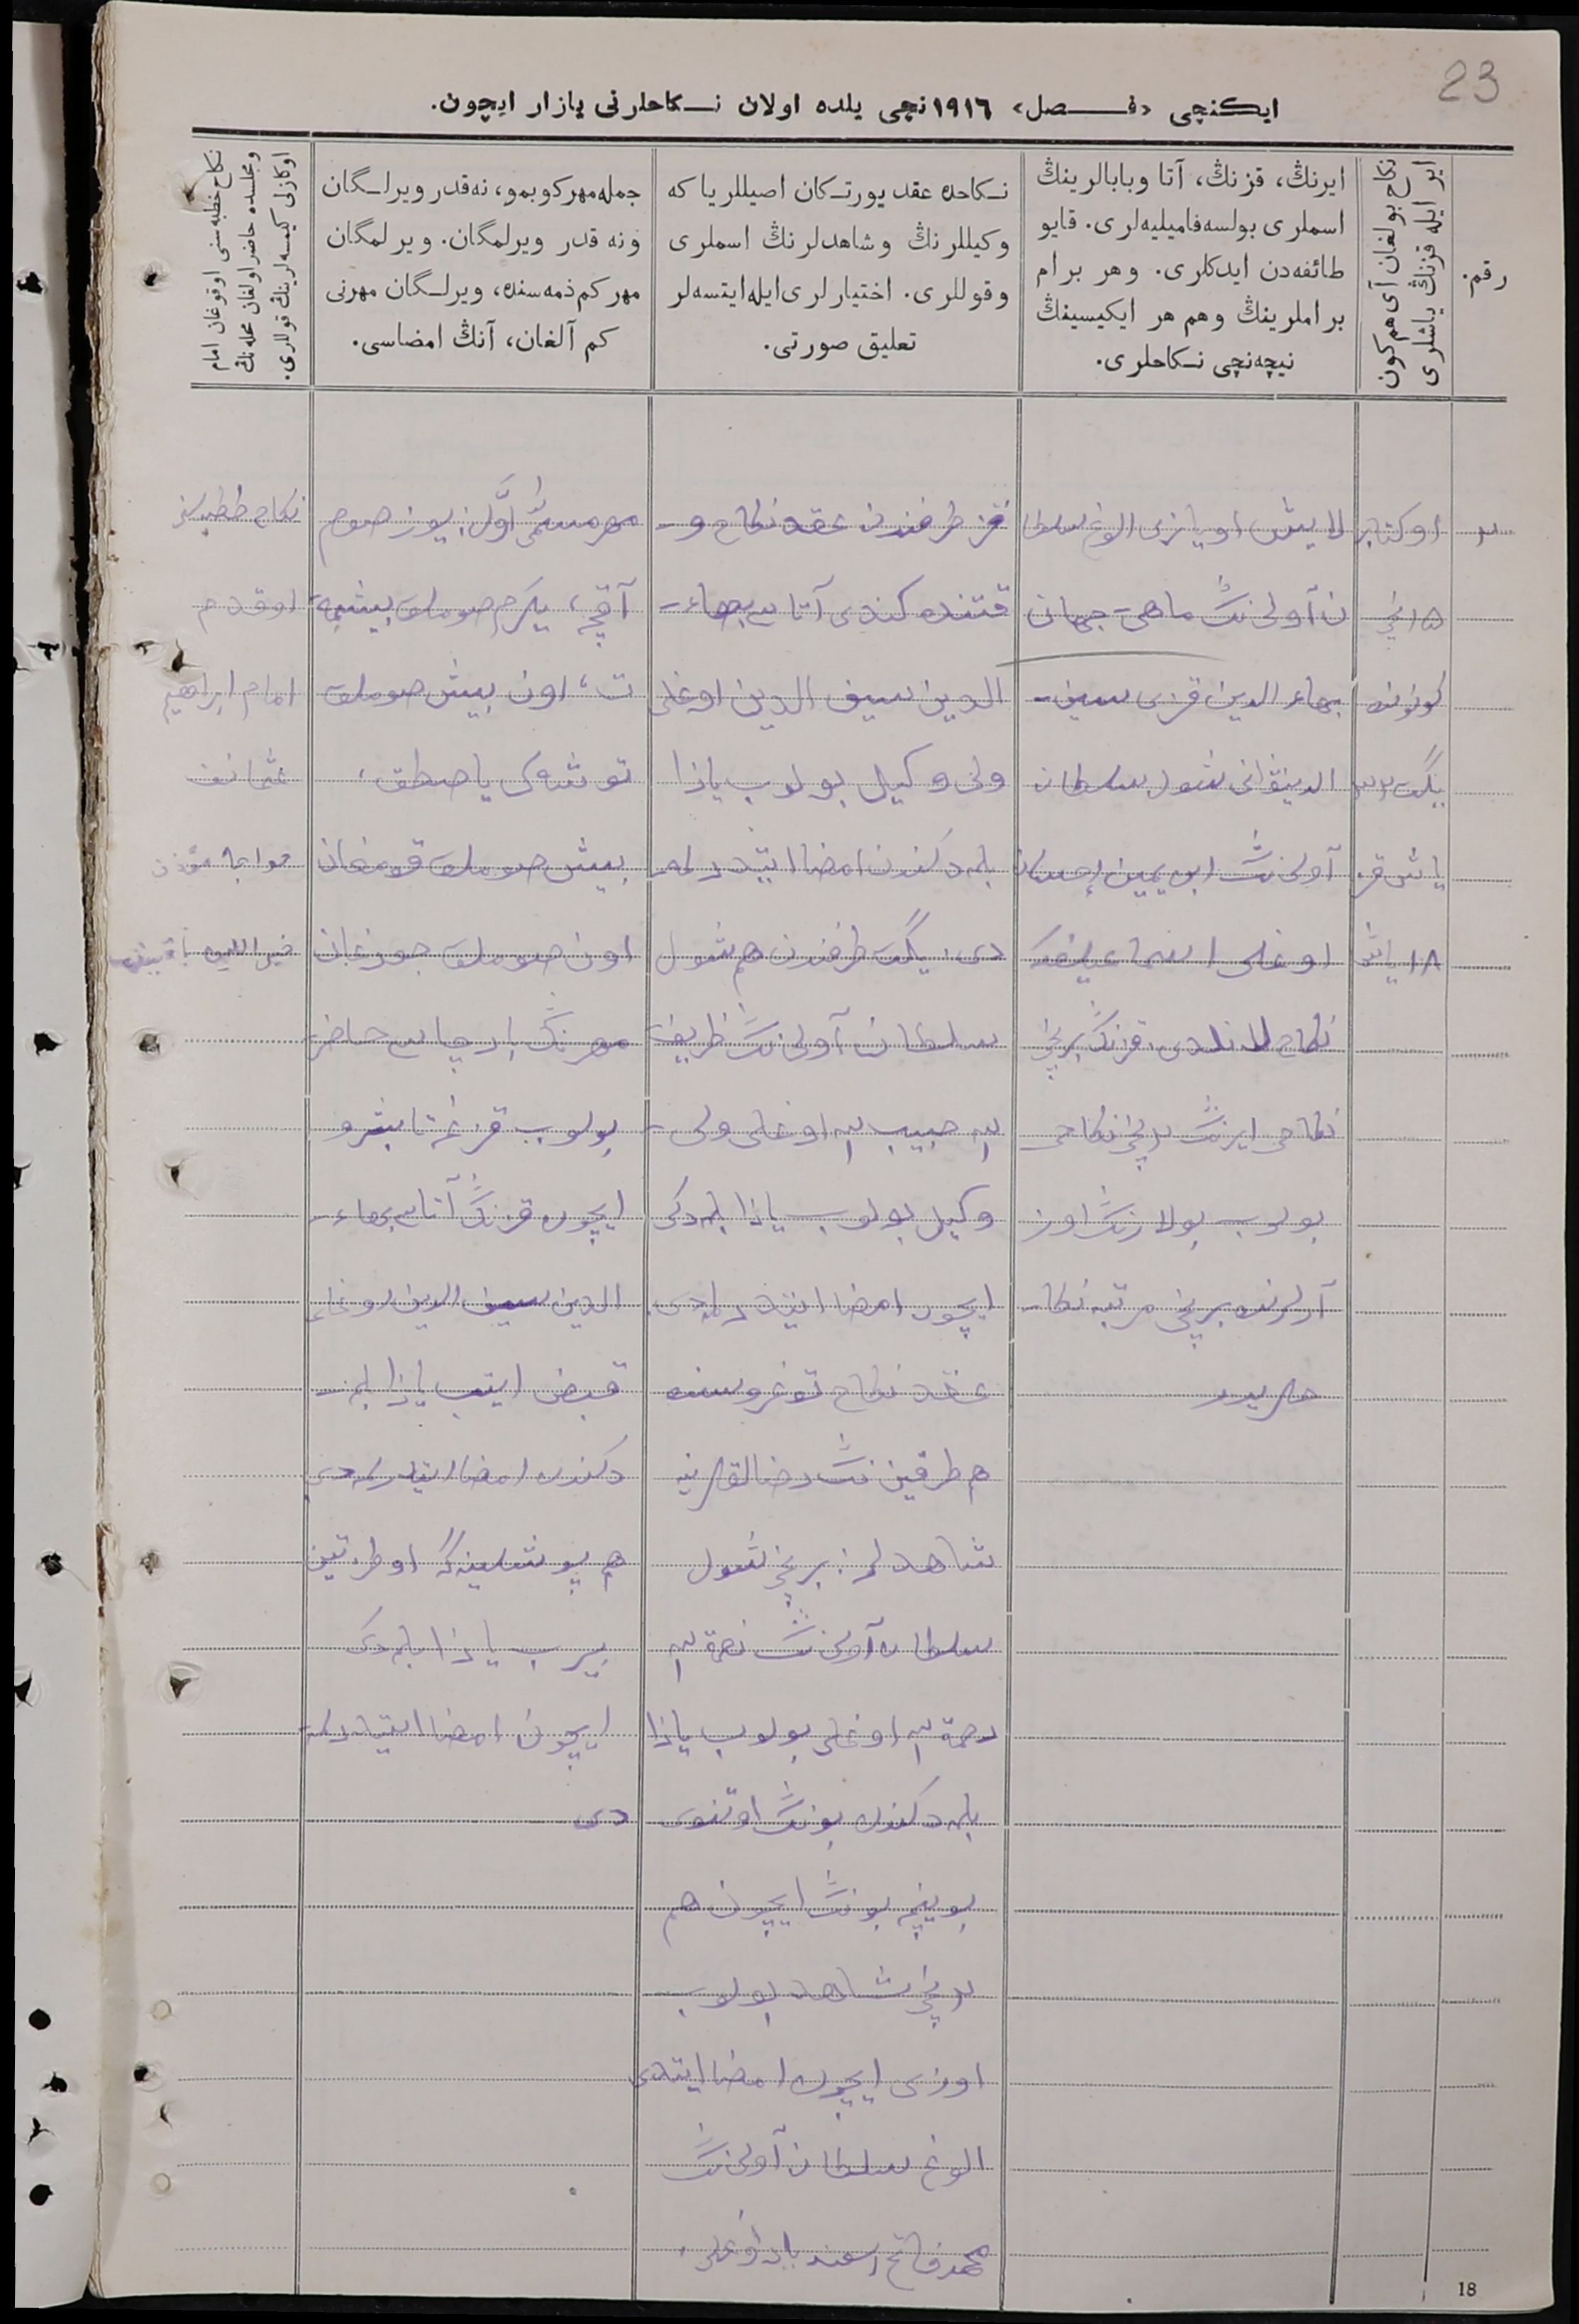 23
ایكنچی «فصل» ١٩١٦ نچی یلده اولان نكاحلرنی یازار ایچون.
رقم.
ایر ایله قزنڭ یاشلری
نكاح بولغان آی هم كون
ایرنڭ، قزنڭ، آتا وبابالرینڭ
اسملری بولسه فامیلیه‌لری. قایو
طائفه‌دن ایدكلری. وهر برام
براملرینڭ وهم هر ایكیسینڭ
نیچه‌نچی نكاحلری.
نكاحده عقد یورتكان اصیللر یا كه
وكیللرنڭ وشاهدلرنڭ اسملری
وقوللری. اختیارلری ایله ایتسه‌لر
تعلیق صورتی.
جمله مهر كوبمو، نه‌قدر ویرلگان
ونه قدر ویرلمگان. ویرلمگان
مهر كم ذمه‌سنده، ویرلگان مهرنی
كم آلغان، آنڭ امضاسی.
نكاح خطبه‌سنی اوقوغان امام
ومجلسده حاضر اولغان محله‌نڭ
اوكازلی كیمسه‌لرینڭ قوللری.
٢
اوكتابر
١٥ نچی
كوننده
یگت ٢٣
یاش قز
١٨ یاش
لایش اویازی الوغ سلطا
ن آولی نڭ ماهی جهان
بهاء الدین قزی سیف
الدینوانی شول سلطان
آولی نڭ ابن یمین احسان
اوغلی اسماعیلف كه
نكاح لاندی. قزنڭ برنچی
نكاحی ایرنڭ ٢ نچی نكاحی
بولوب بولارنڭ اوز
آرلرنده برنچی مرتبه نكا
حلریدر
قز طرفندن عقد نكاح و
قتنده كندی آتاسی بهاء
الدین سیف الدین اوغلی
ولی وكیل بولوب یازا
بلمدكندن امضا ایتدرلمه
دی. یگت طرفندن هم شول
سلطان آولی نڭ ظریف
الله حبیب الله اوغلی ولی
وكیل بولوب یازا بلمدكی
ایچون امضا ایتدرلمدی.
عقد نكاح توغروسنده
هم طرفین نڭ رضالقلرینه
شاهدلر: برنچی شول
سلطان آولی نڭ نعمة الله
رحمة الله اوغلی بولوب یازا
بلمدكندن بونڭ اوتنوی
بوینچه بونڭ ایچون هم
٢ نچی شاهد بولوب
اوزی ایچون امضا ایتدی
الوغ سلطان آولی نڭ
محمد فاتح اسفندیار اوغلی.
مهر مسمی اول: یوز صوم
آقچه، یكرمی صوملق بیشمه
ت، اون بیش صوملق
توشك یاصطق،
بیش صوملق قومغان
اون صوملق جوزغان
مهرنڭ بارچاسی حاضر
بولوب قزغه تابشرو
ایچون قزنڭ آتاسی بهاء
الدین سیف الدین اوغلی
قبض ایتب یازا بلمه
دكندن امضا ایتدرلمدی
بیرب یازا بلمدك
ایچون امضا ایتدرلمه
دی
نكاح خطبه سن
اوقدم
امام ابراهیم
عثمانف
18